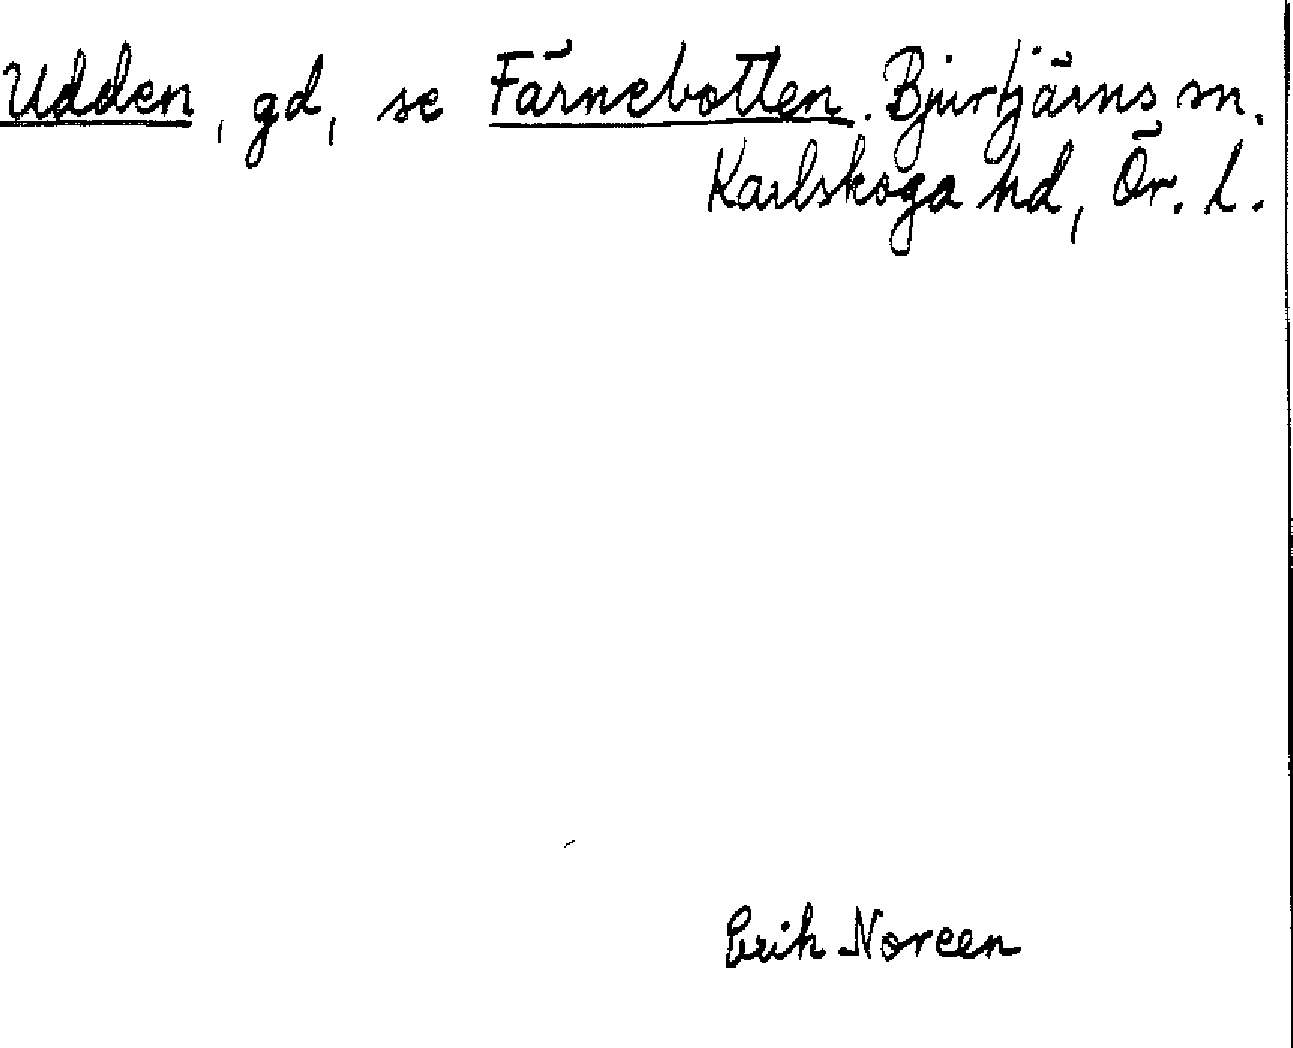 Udden, gd, se Färnebotten. Bjurtjärns sn.
Karlskoga hd, Ör. L.
Erik Noreen